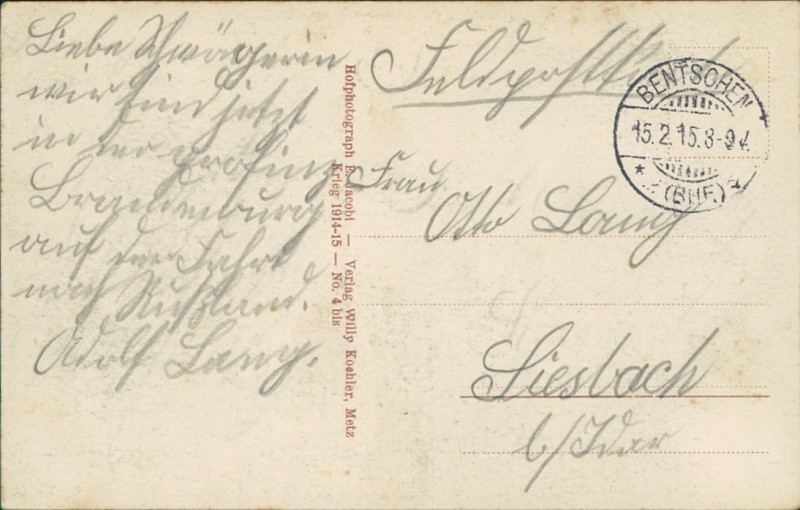 Liebe Schwägerin
wir sind jetzt
in der profinz
Brandenburg
auf der Fahrt
nach Rußland.
Adolf Lang.
Hofphotograph E. Jacobi — Verlag Willy Koehler, Metz
Krieg 1914-15 — No. 4 bis
Feldpostkarte
BENTSCHEN
15.2.15.8-9V.
* (BHF.)
Frau
Otto Lang
Siesbach
b/Idar